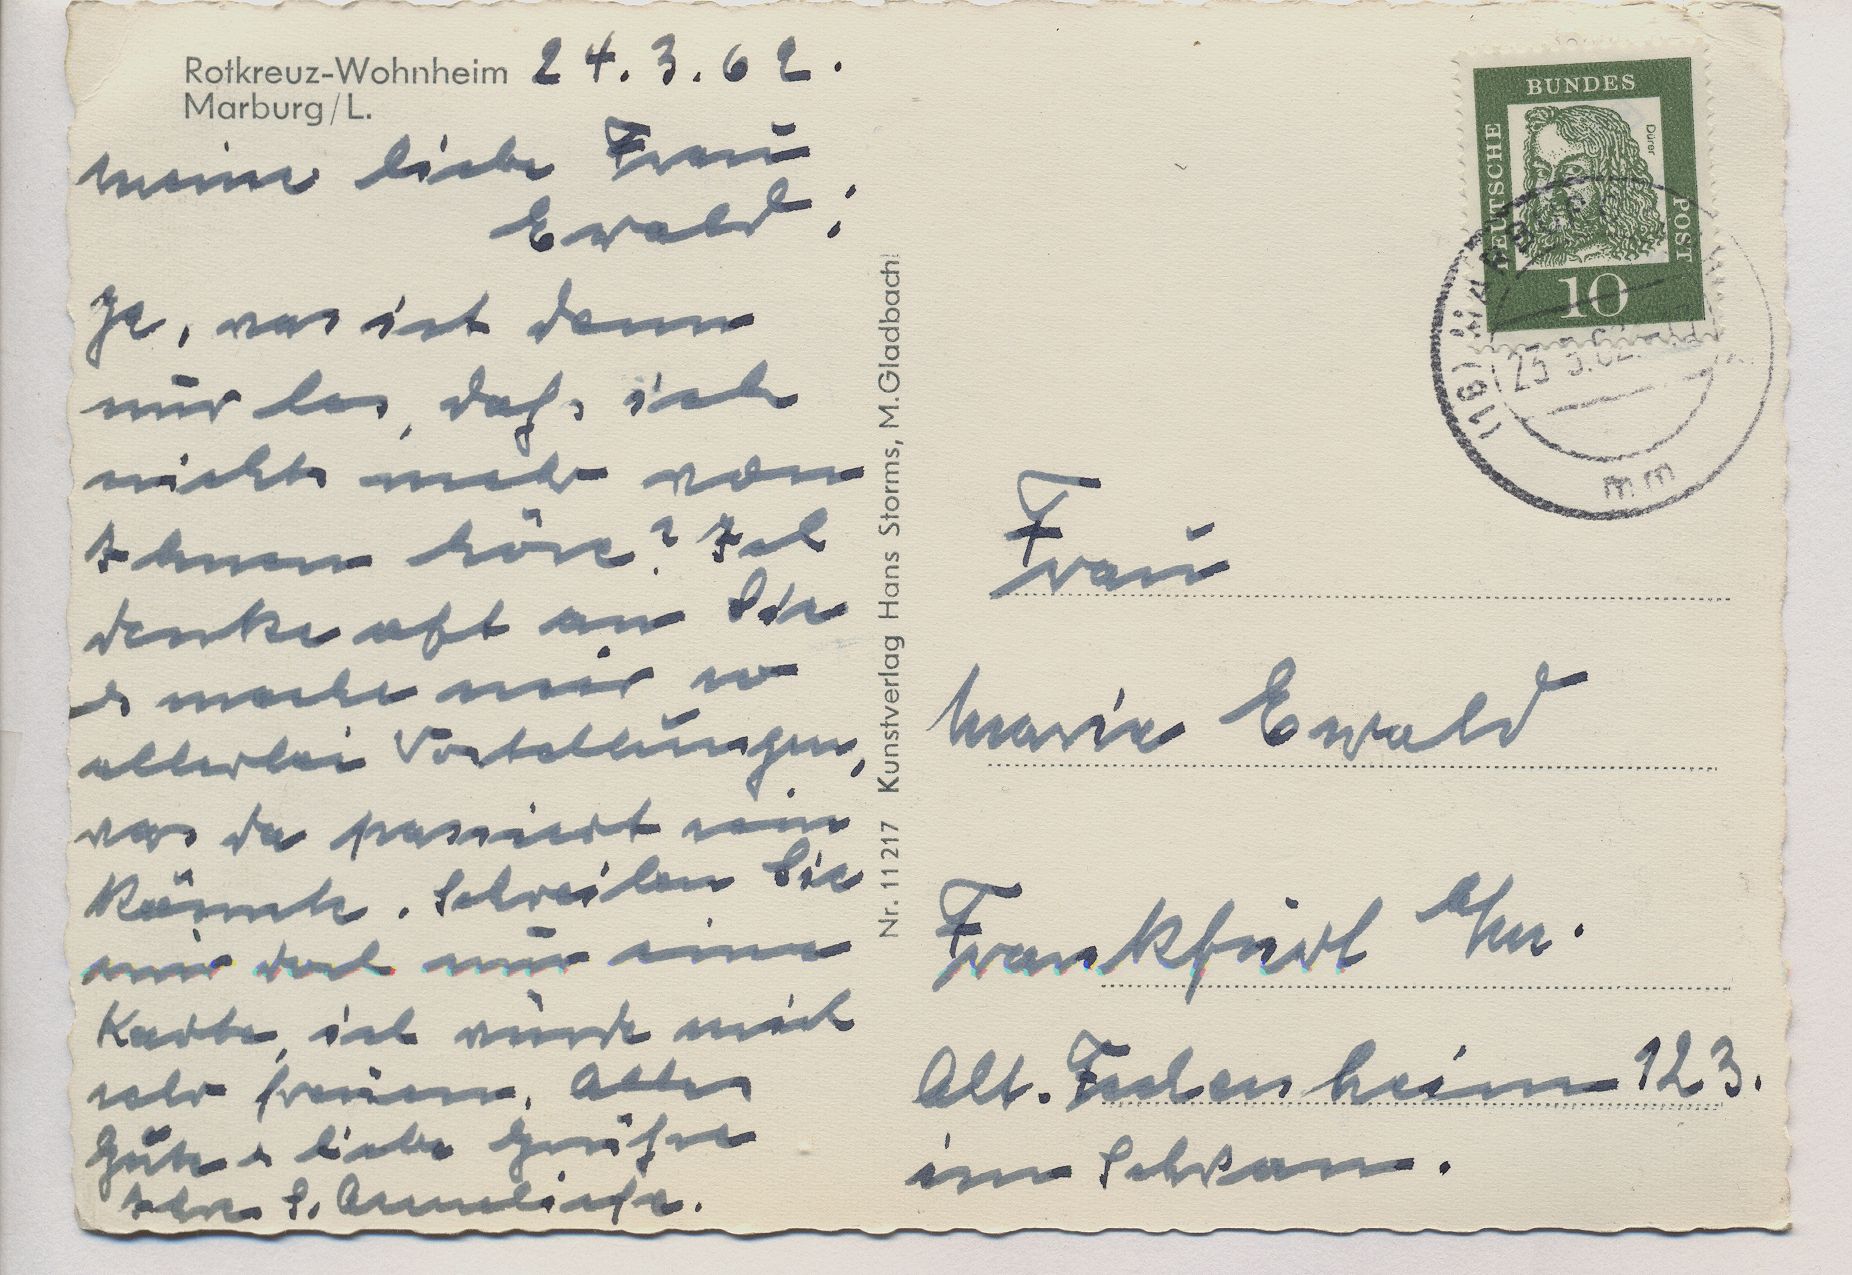 Rotkreuz-Wohnheim 24.3.62.
Marburg/L.
Meine liebe Frau
Ewald!
Ja, was ist denn
nur los, daß ich
nichts mehr von
Ihnen höre? Ich
denke oft an Sie
u. mache mir so
allerlei Vorstellungen,
was da passiert sein
könnte. Schreiben Sie
mir doch nur eine
Karte, ich würde mich
sehr freuen. Alles
Gute u. liebe Grüße
Ihre S. Anneliese.
Nr. 11217 Kunstverlag Hans Storms, M.Gladbach
DEUTSCHE BUNDES POST
Dürer
10
(16) MARBURG
23.3.62
mm
Frau
Marie Ewald
Frankfurt a/M.
Alt. Fechenheim 123.
im Schwan.